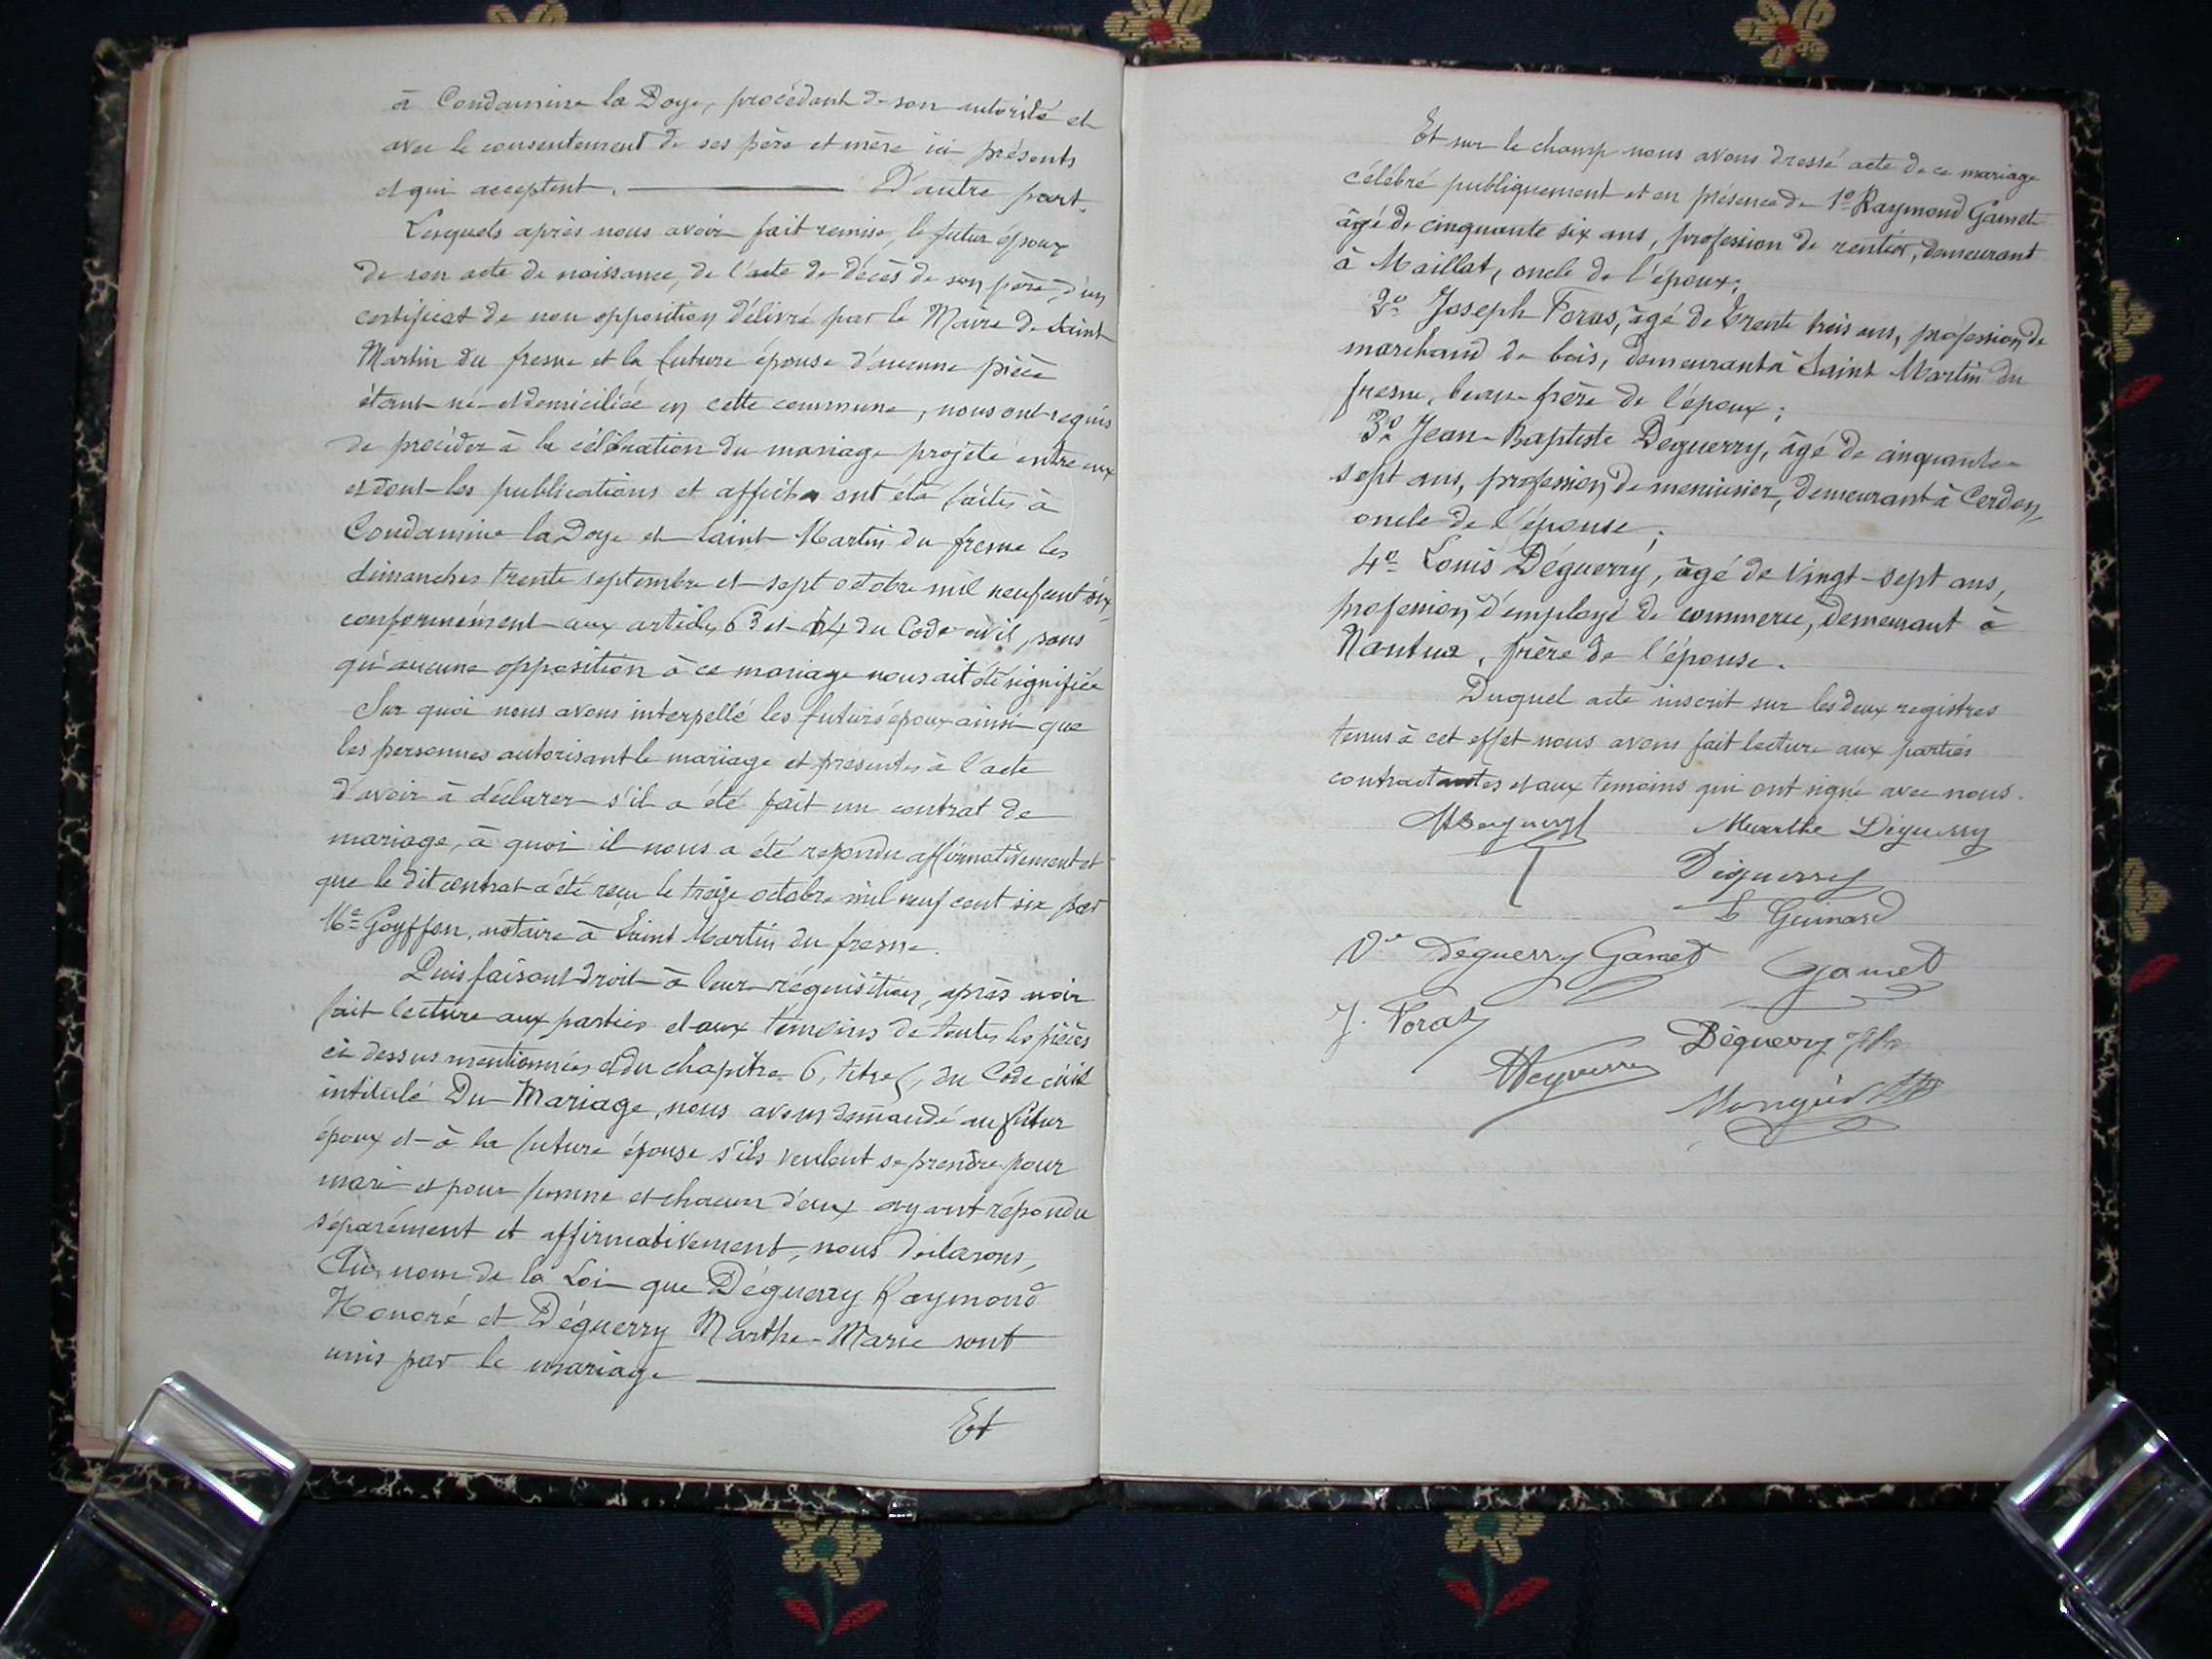 à Condamine la Doye, procédant de son autorité et
avec le consentement de ses père et mère ici présents
et qui acceptent. D'autre part.
Lesquels après nous avoir fait remise, le futur époux
de son acte de naissance, de l'acte de décès de son père, d'un
certificat de non opposition délivré par le Maire de Saint
Martin du fresne et la future épouse d'aucune pièce
étant né et domiciliée en cette commune, nous ont requis
de procéder à la célébration du mariage projeté entre eux
et dont les publications et affiches ont été faites à
Condamine la Doye et Saint Martin du fresne les
dimanches trente septembre et sept octobre mil neuf cent six,
conformément aux articles 63 et 64 du Code civil, sans
qu'aucune opposition à ce mariage nous ait été signifiée
Sur quoi nous avons interpellé les futurs époux ainsi que
les personnes autorisant le mariage et présentes à l'acte
d'avoir à déclarer s'il a été fait un contrat de
mariage, à quoi il nous a été répondu affirmativement et
que le dit contrat a été reçu le treize octobre mil neuf cent six par
Me Goyffon, notaire à Saint Martin du fresne.
Puis faisant droit à leur réquisition, après avoir
fait lecture aux parties et aux témoins de toutes les pièces
ci dessus mentionnées et du chapitre 6, titre 5, du Code civil
intitulé Du Mariage, nous avons demandé au futur
époux et à la future épouse s'ils veulent se prendre pour
mari et pour femme et chacun d'eux ayant répondu
séparément et affirmativement, nous déclarons,
Au nom de la Loi que Déguerry Raymond
Honoré et Déguerry Marthe-Marie sont
unis par le mariage
Et
Et sur le champ nous avons dressé acte de ce mariage
célébré publiquement et en présence de 1o Raymond Gamet
âgé de cinquante six ans, profession de rentier, demeurant
à Maillat, oncle de l'époux;
2o Joseph Foras, âgé de trente trois ans, profession de
marchand de bois, demeurant à Saint Martin du
fresne, beau-frère de l'époux;
3o Jean-Baptiste Deguerry, âgé de cinquante-
sept ans, profession de menuisier, demeurant à Cerdon,
oncle de l'épouse;
4o Louis Déguerry, âgé de Vingt-sept ans,
profession d'employé de commerce, demeurant à
Nantua, frère de l'épouse.
Duquel acte inscrit sur les deux registres
tenus à cet effet nous avons fait lecture aux parties
contractantes et aux témoins qui ont signé avec nous.
Marthe Déguerry
Déguerry
L Guinard
Ve Deguerry Gamet Gamet
J. Foras
Déguerry